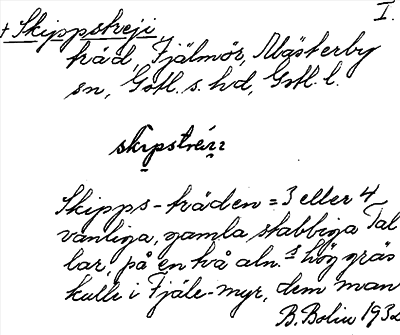 I.
+ Skippstreji,
träd, Fjälmör, Mästerby
sn, Gotl. s. hd, Gotl. l.
Skipps-träden = 3 eller 4
vanliga, gamla stabbiga Tal
lar, på en två aln. s hög gräs
kulle i Fjäle-myr, dem man
B. Bolin 1932